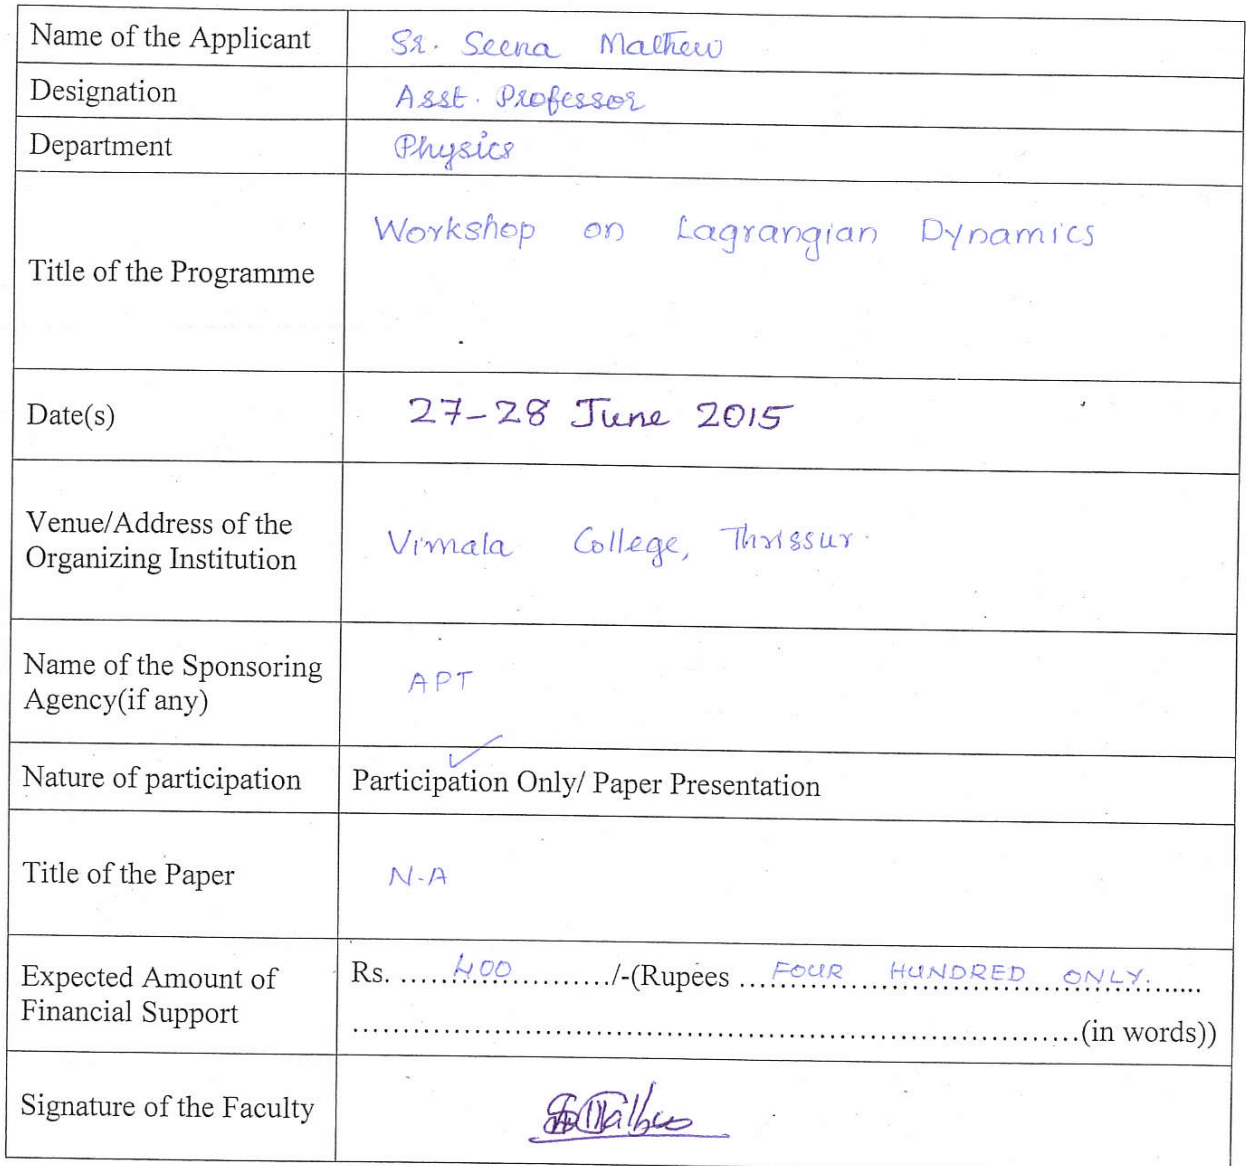 Name of the Applicant Sr. Seena Mathew
Designation Asst. Professor
Department Physics
Title of the Programme Workshop on Lagrangian Dynamics
Date(s) 27-28 June 2015
Venue/Address of the
Organizing Institution Vimala College, Thrissur.
Name of the Sponsoring
Agency(if any) APT
Nature of participation Participation Only/ Paper Presentation
Title of the Paper N-A
Expected Amount of
Financial Support
Rs. .....400............../-(Rupees ...FOUR HUNDRED ONLY......
........................................................................(in words))
Signature of the Faculty